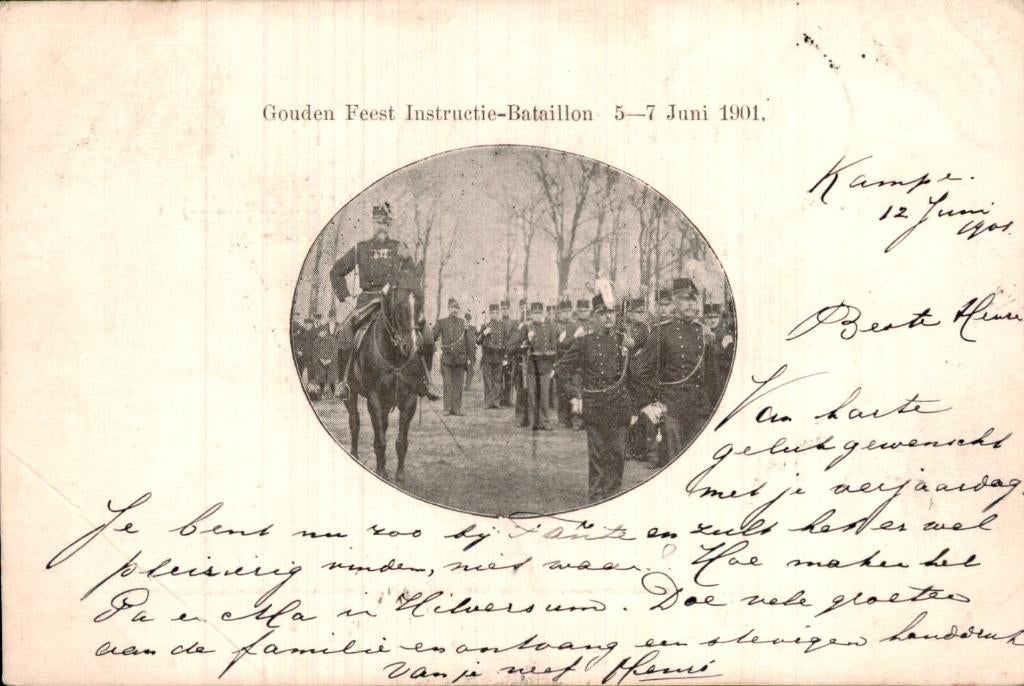 Gouden Feest Instructie-Bataillon 5—7 Juni 1901.
Kampe.
12 Juni
1901.
Beste Henri
Van harte
geluk gewenscht
met je verjaardag.
Je bent nu zoo bij Tante en zult het er wel
pleizierig vinden, niet waar? Hoe maken het
Pa en Ma in Hilversum. Doe vele groeten
aan de familie en ontvang een stevigen handdruk
van je neef Henri